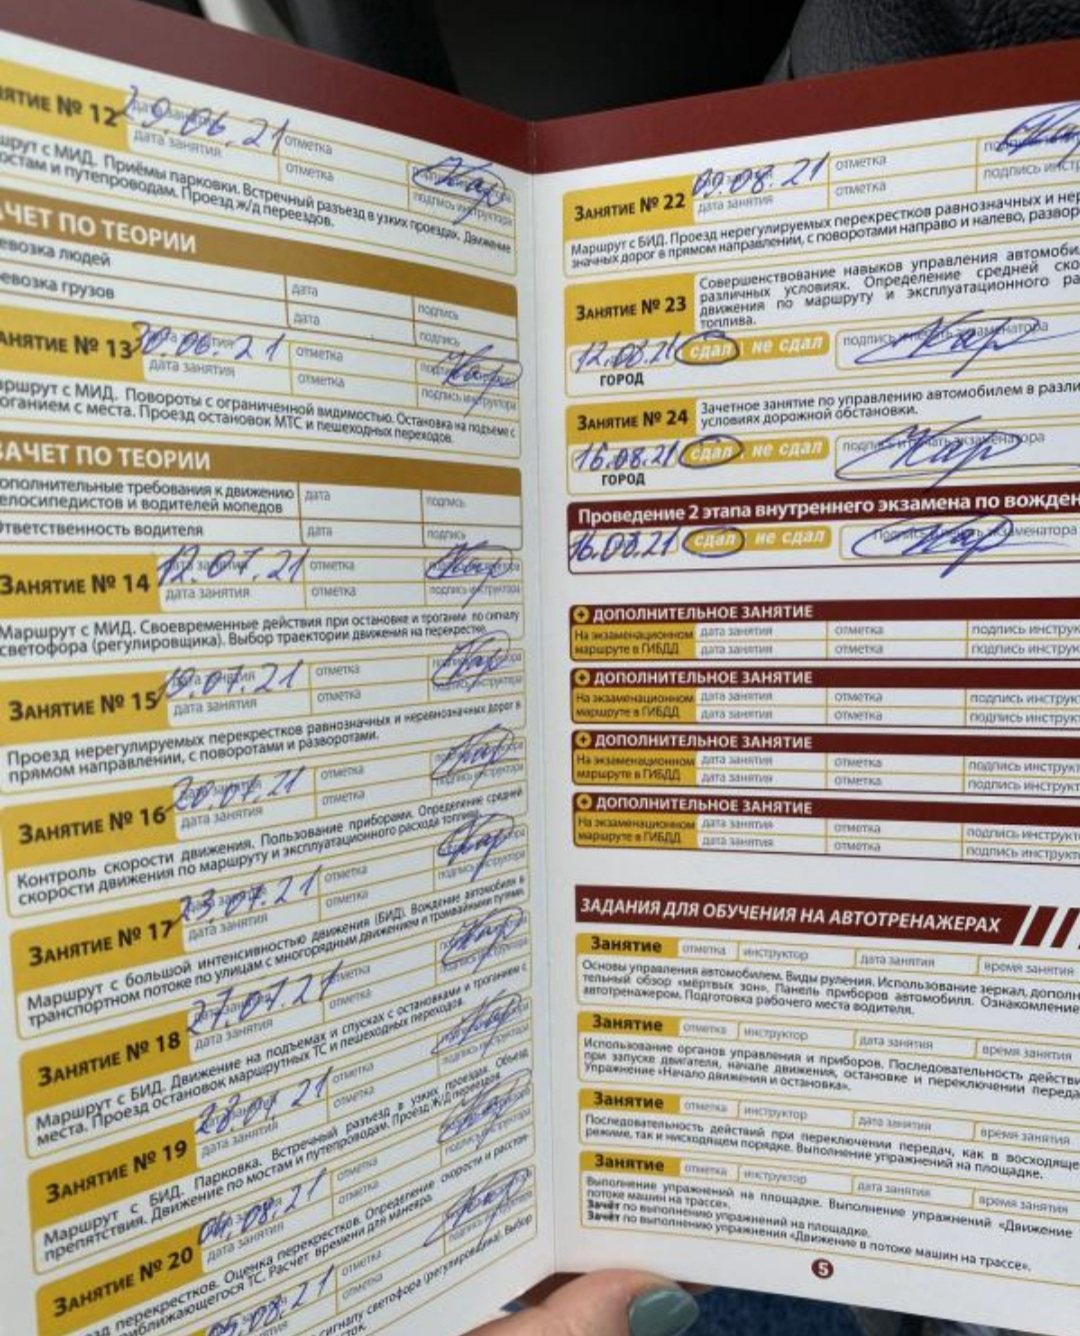 ЯТИЕ № 12
29.06.21
дата занятия
отметка
отметка
подпись инструктора
шрут с МИД. Приёмы парковки. Встречный разъезд в узких проездах. Движение
остам и путепроводам. Проезд ж/д переездов.
АЧЕТ ПО ТЕОРИИ
евозка людей
дата
подпись
евозка грузов
дата
подпись
АНЯТИЕ № 13
30.06.21
дата занятия
отметка
отметка
подпись инструктора
аршрут с МИД. Повороты с ограниченной видимостью. Остановка на подъеме с
оганием с места. Проезд остановок МТС и пешеходных переходов.
ЗАЧЕТ ПО ТЕОРИИ
ополнительные требования к движению
елосипедистов и водителей мопедов
дата
подпись
Ответственность водителя
дата
подпись
ЗАНЯТИЕ № 14
12.07.21
дата занятия
отметка
отметка
подпись инструктора
Маршрут с МИД. Своевременные действия при остановке и трогании по сигналу
светофора (регулировщика). Выбор траектории движения на перекрестке.
ЗАНЯТИЕ № 15
19.07.21
дата занятия
отметка
отметка
подпись инструктора
Проезд нерегулируемых перекрестков равнозначных и неравнозначных дорог в
прямом направлении, с поворотами и разворотами.
ЗАНЯТИЕ № 16
20.07.21
дата занятия
отметка
отметка
подпись инструктора
Контроль скорости движения. Пользование приборами. Определение средней
скорости движения по маршруту и эксплуатационного расхода топлива.
ЗАНЯТИЕ № 17
23.07.21
дата занятия
отметка
отметка
Маршрут с большой интенсивностью движения (БИД). Вождение автомобиля в
транспортном потоке по улицам с многорядным движением и трамвайными путями.
ЗАНЯТИЕ № 18
27.07.21
дата занятия
отметка
отметка
подпись инструктора
Маршрут с БИД. Движение на подъемах и спусках с остановками и троганием с
места. Проезд остановок маршрутных ТС и пешеходных переходов.
ЗАНЯТИЕ № 19
дата занятия
отметка
отметка
подпись инструктора
Маршрут с БИД. Парковка. Встречный разъезд в узких проездах. Объезд
препятствия. Движение по мостам и путепроводам. Проезд ж/д переездов.
ЗАНЯТИЕ № 20
04.08.21
дата занятия
отметка
отметка
зд перекрестков. Оценка перекрестков. Определение скорости и расстоя-
приближающегося ТС. Расчет времени для маневра.
05.08.21
отметка
отметка
сигналу светофора (регулировщика). Выбор
ЗАНЯТИЕ № 22
09.08.21
дата занятия
отметка
отметка
подпись инстр
Маршрут с БИД. Проезд нерегулируемых перекрестков равнозначных и нер
значных дорог в прямом направлении, с поворотами направо и налево, развор
ЗАНЯТИЕ № 23
Совершенствование навыков управления автомоби
различных условиях. Определение средней ско
движения по маршруту и эксплуатационного ра
топлива.
12.08.21
сдал | не сдал
ГОРОД
ЗАНЯТИЕ № 24
Зачетное занятие по управлению автомобилем в разли
условиях дорожной обстановки.
16.08.21
сдал | не сдал
подпись и печать экзаменатора
ГОРОД
Проведение 2 этапа внутреннего экзамена по вожден
16.08.21
сдал | не сдал
ДОПОЛНИТЕЛЬНОЕ ЗАНЯТИЕ
На экзаменационном
маршруте в ГИБДД
дата занятия
отметка
подпись инструк
дата занятия
отметка
подпись инструк
ДОПОЛНИТЕЛЬНОЕ ЗАНЯТИЕ
На экзаменационном
маршруте в ГИБДД
дата занятия
отметка
подпись инструк
дата занятия
отметка
подпись инструк
ДОПОЛНИТЕЛЬНОЕ ЗАНЯТИЕ
На экзаменационном
маршруте в ГИБДД
дата занятия
отметка
подпись инструкт
дата занятия
отметка
подпись инструкт
ДОПОЛНИТЕЛЬНОЕ ЗАНЯТИЕ
На экзаменационном
маршруте в ГИБДД
дата занятия
отметка
подпись инструкт
дата занятия
отметка
подпись инструкт
ЗАДАНИЯ ДЛЯ ОБУЧЕНИЯ НА АВТОТРЕНАЖЕРАХ
Занятие
отметка
инструктор
дата занятия
время занятия
Основы управления автомобилем. Виды руления. Использование зеркал, дополн
тельный обзор «мёртвых зон». Панель приборов автомобиля. Ознакомление
автотренажером. Подготовка рабочего места водителя.
Занятие
отметка
инструктор
дата занятия
время занятия
Использование органов управления и приборов. Последовательность действи
при запуске двигателя, начале движения, остановке и переключении переда
упражнение «Начало движения и остановка».
Занятие
отметка
инструктор
дата занятия
время занятия
Последовательность действий при переключении передач, как в восходяще
режиме, так и нисходящем порядке. Выполнение упражнений на площадке.
Занятие
отметка
инструктор
дата занятия
время занятия
Выполнение упражнений на площадке. Выполнение упражнений «Движение
потоке машин на трассе».
Зачёт по выполнению упражнений на площадке.
Зачёт по выполнению упражнения «Движение в потоке машин на трассе».
5